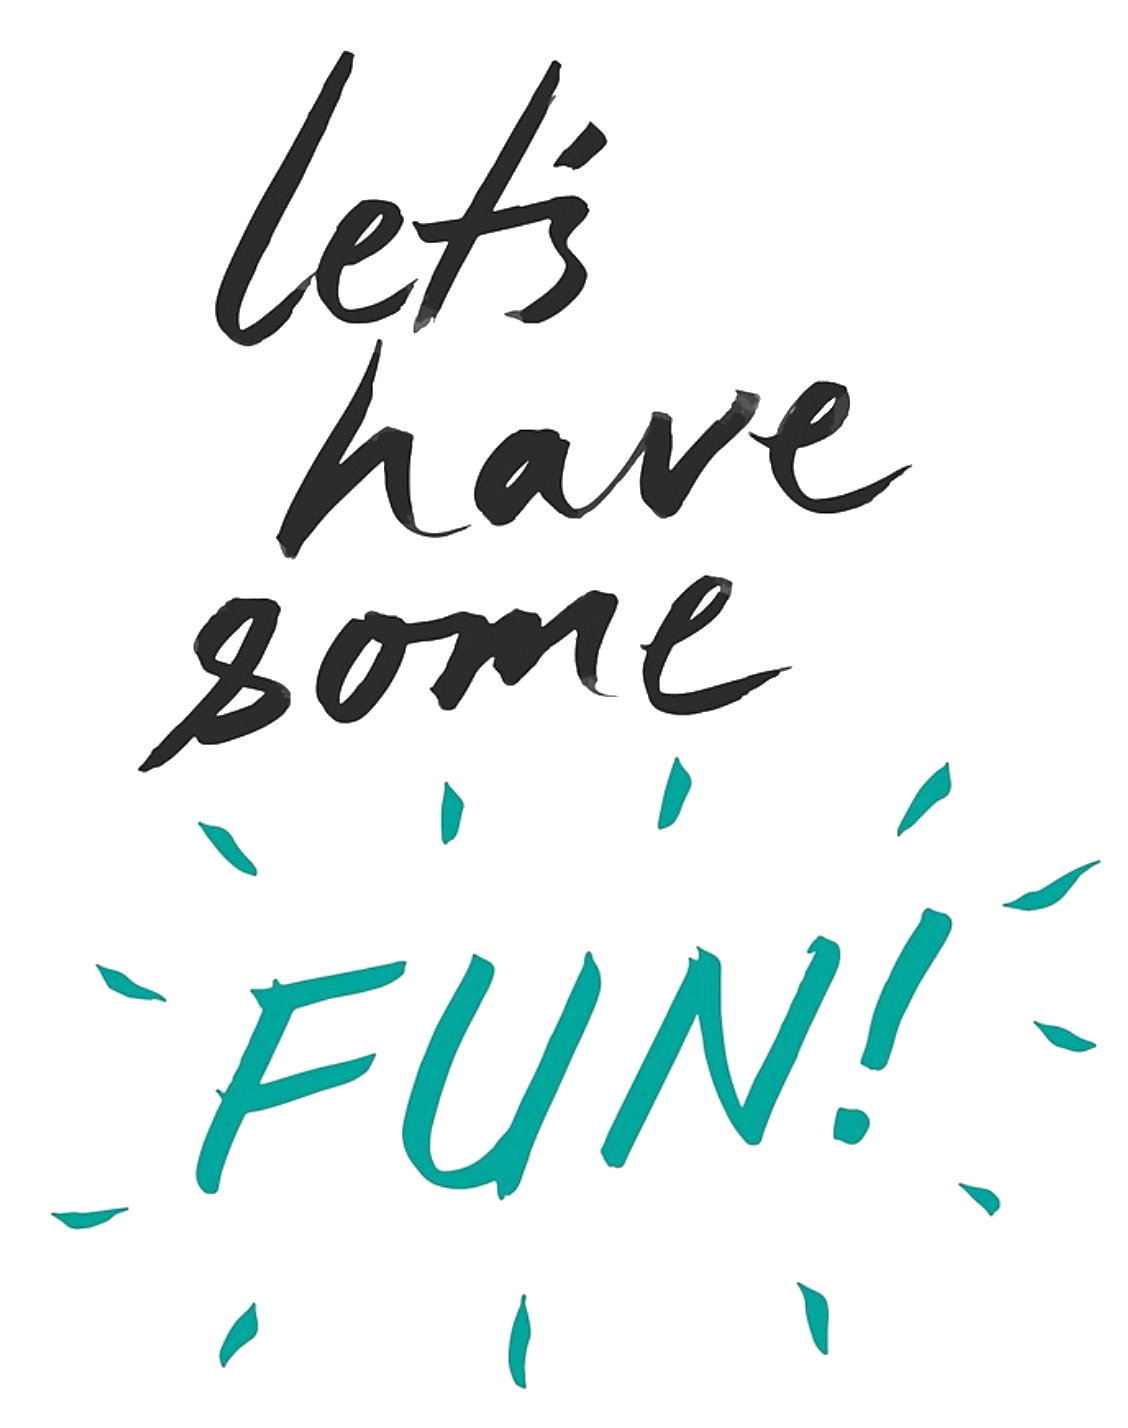 let's
have
some
FUN!